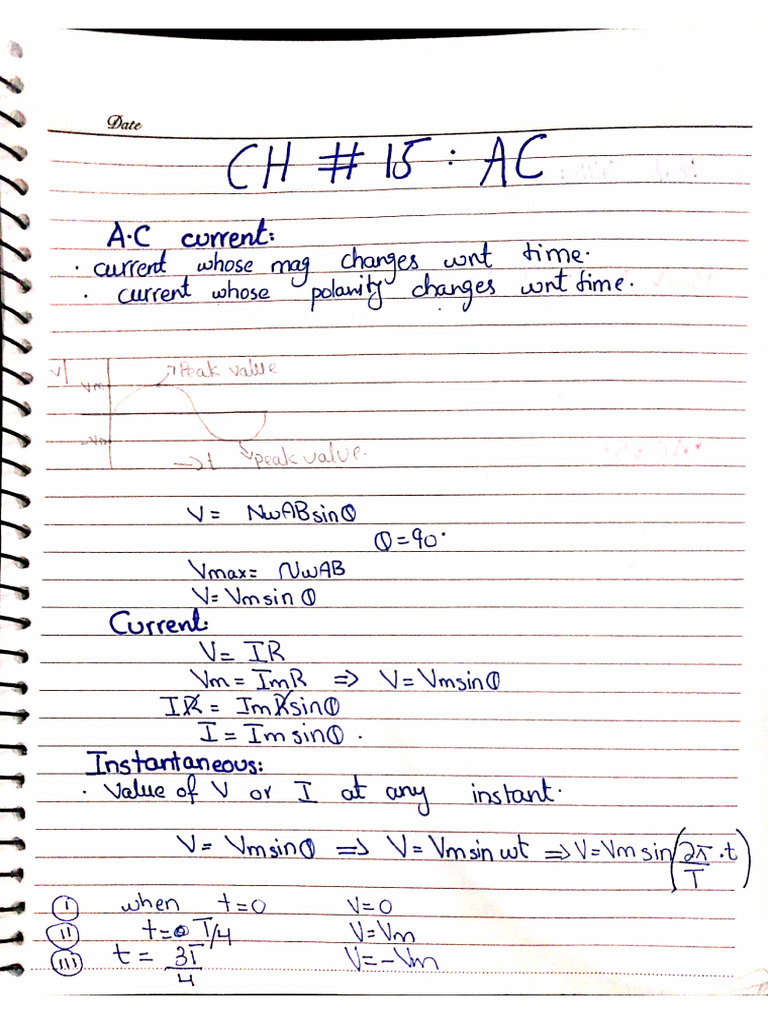 Date
CH # 15 : AC
A.C current:
· current whose mag changes wrt time.
· current whose polarity changes wrt time.
V
Vm
Peak value
-Vm
→ t
peak value.
V = NωABsinθ
θ = 90°
Vmax = NωAB
V = Vm sin θ
Current:
V = IR
Vm = ImR ⇒ V = Vm sin θ
IR = ImR sin θ
I = Im sin θ .
Instantaneous:
· Value of V or I at any instant.
V = Vm sin θ ⇒ V = Vm sin ωt ⇒ V = Vm sin (2π/T · t)
(i) when t=0 V=0
(ii) t= T/4 V=Vm
(iii) t= 3T/4 V=-Vm